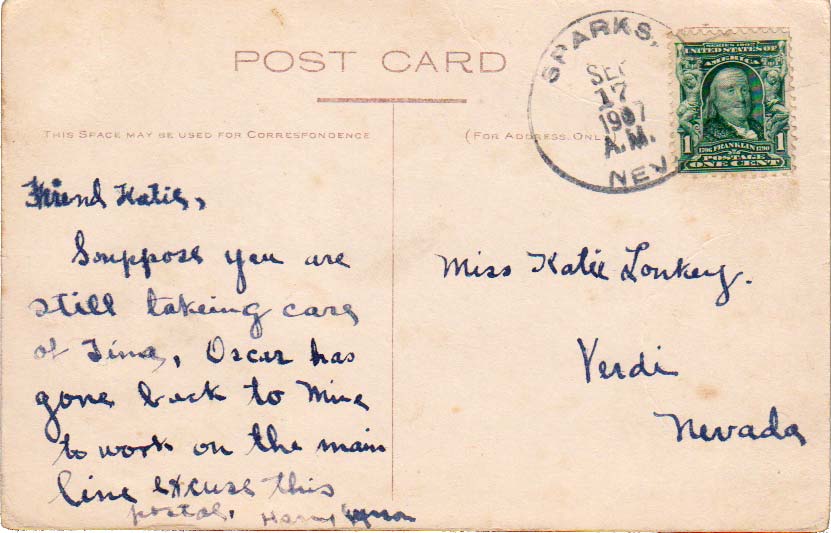 POST CARD
THIS SPACE MAY BE USED FOR CORRESPONDENCE
(FOR ADDRESS ONL
SPARKS,
SEP
17
1907
A.M.
NEV.
SERIES 1902
UNITED STATES OF
AMERICA
1 1
1706 FRANKLIN 1790
POSTAGE
ONE CENT
Friend Katie,
Souppose you are
still takeing care
of Tina, Oscar has
gone back to Mina
to work on the main
line excuse this
postal. Harry
Miss Katie Lonkey.
Verdi
Nevada